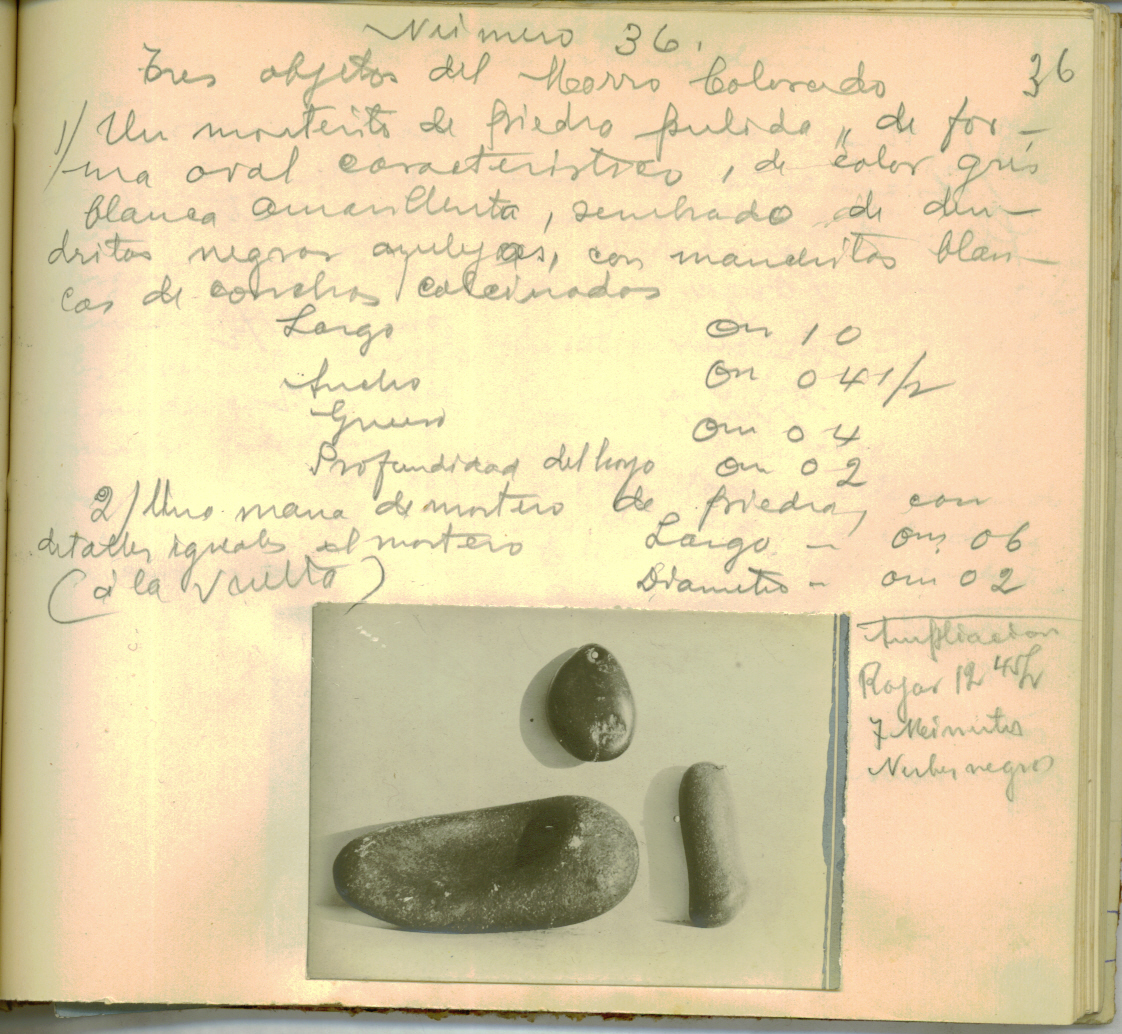 Número 36.
36
Tres objetos del Morro Colorado
1/ Un morterito de piedra pulida, de for-
ma oval caracteristico, de color gris
blanca amarillenta, sembrado de den-
dritas negras azulejas, con manchitas blan-
cas de conchas calcinadas
Largo 0m 10
Ancho 0m 04 1/2
Grueso 0m 04
Profundidad del hoyo 0m 02
2/ Una mana de mortero de piedra, con
detalles iguales al mortero Largo - 0m 06
(á la vuelta) Diametro - 0m 02
Ampliacion
12
7 Minutos
Nubes negras